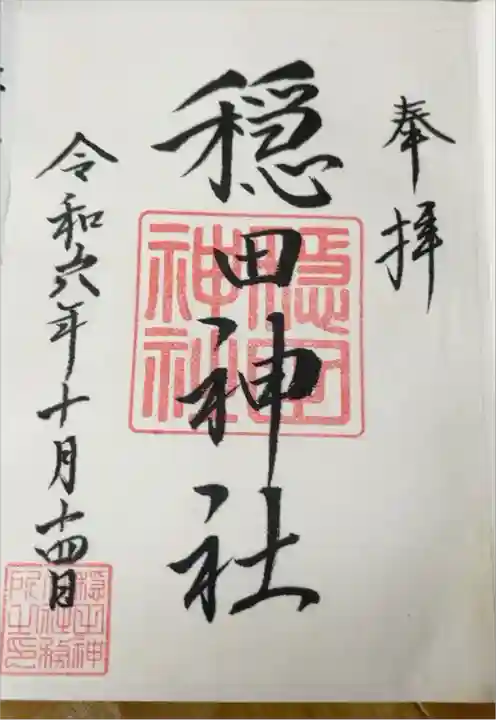 奉拝
穏田神社
穏田神社
令和六年十月十四日
穏田神社社務所之印